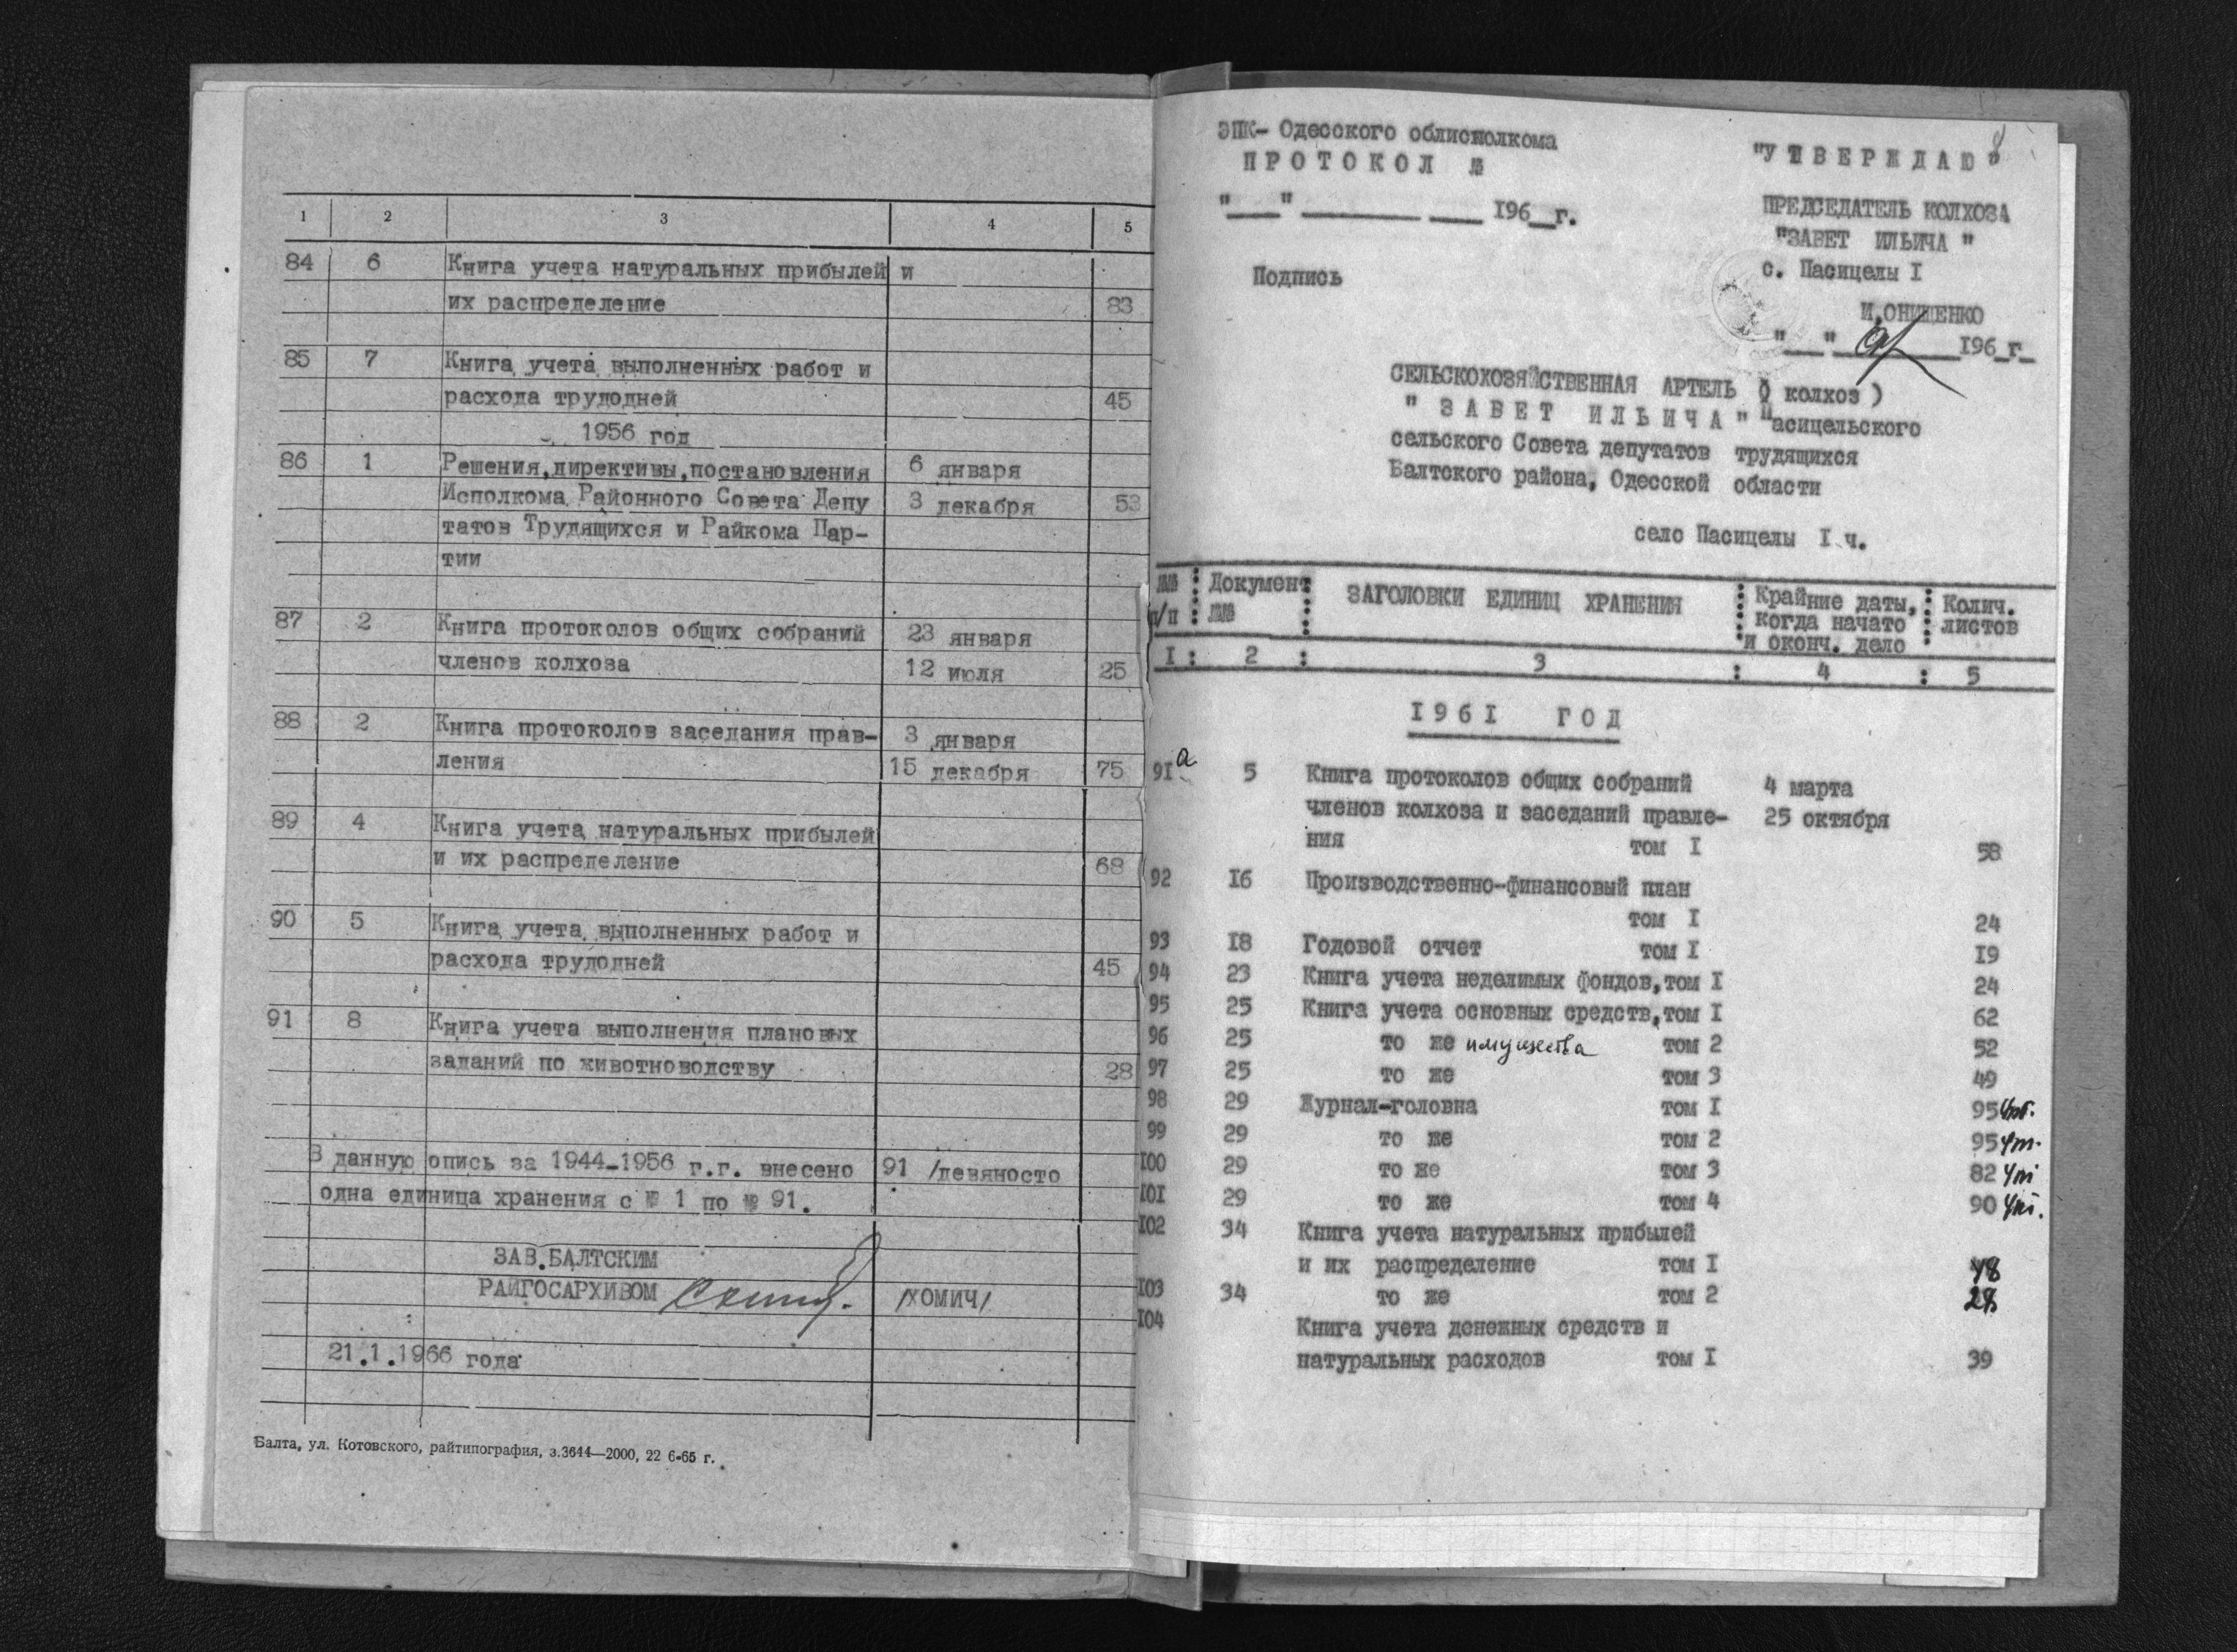 1 2 3 4 5
84 6 Книга учета натуральных прибылей и
их распределение 83
85 7 Книга учета выполненных работ и
расхода трудодней 45
1956 год
86 1 Решения, директивы, постановления 6 января
Исполкома Районного Совета Депу 3 декабря 53
татов Трудящихся и Райкома Пар-
тии
87 2 Книга протоколов общих собраний 23 января
членов колхоза 12 июля 25
88 2 Книга протоколов заседания прав- 3 января
ления 15 декабря 75
89 4 Книга учета натуральных прибылей
и их распределение 68
90 5 Книга учета выполненных работ и
расхода трудодней 45
91 8 Книга учета выполнения плановых
заданий по животноводству 28
В данную опись за 1944-1956 г.г. внесено 91 /девяносто
одна единица хранения с № 1 по № 91.
ЗАВ.БАЛТСКИМ
РАЙГОСАРХИВОМ /ХОМИЧ/
21.1.1966 года
Балта, ул. Котовского, райтипография, з.3644—2000, 22 6-65 г.
ЭПК- Одесского облисполкома
ПРОТОКОЛ №
"___" ________ ____ 196__г.
Подпись
"УТВЕРЖДАЮ"
ПРЕДСЕДАТЕЛЬ КОЛХОЗА
"ЗАВЕТ ИЛЬИЧА"
с. Пасицелы I
И.ОНИЩЕНКО
"___"________196_г_
СЕЛЬСКОХОЗЯЙСТВЕННАЯ АРТЕЛЬ ( колхоз )
" ЗАВЕТ ИЛЬИЧА " Пасицельского
сельского Совета депутатов трудящихся
Балтского района, Одесской области
село Пасицелы I ч.
№№ п/п Документ №№ ЗАГОЛОВКИ ЕДИНИЦ ХРАНЕНИЯ Крайние даты, когда начато и оконч. дело Колич. листов
I : 2 : 3 : 4 : 5
1961 ГОД
91а 5 Книга протоколов общих собраний 4 марта
членов колхоза и заседаний правле- 25 октября
ния том I 58
92 16 Производственно-финансовый план
том I 24
93 18 Годовой отчет том I 19
94 23 Книга учета неделимых фондов, том I 24
95 25 Книга учета основных средств, том I 62
96 25 то же имущества том 2 52
97 25 то же том 3 49
98 29 Журнал-головна том I 95
99 29 то же том 2 95
100 29 то же том 3 82
101 29 то же том 4 90
102 34 Книга учета натуральных прибылей
и их распределение том I 48
103 34 то же том 2
104 Книга учета денежных средств и
натуральных расходов том I 39